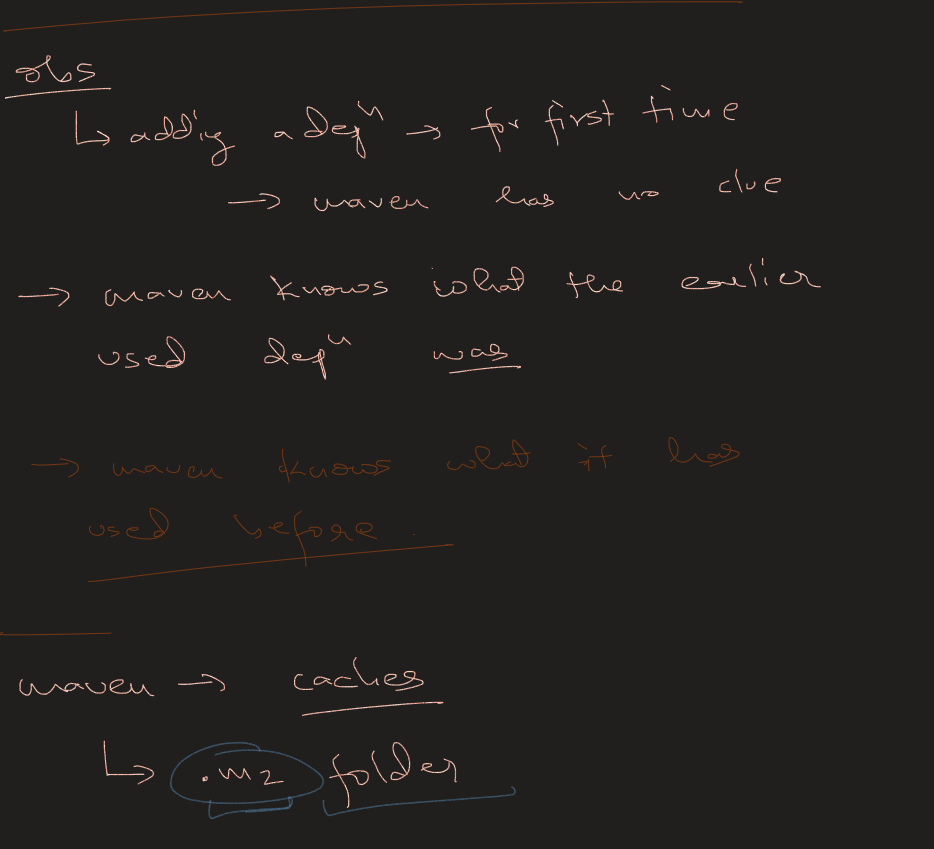 obs
↳ adding a depⁿ → for first time
→ maven has no clue
→ maven knows what the earlier
used depⁿ was
→ maven knows what it has
used before.
maven → caches
↳ .m2 folder